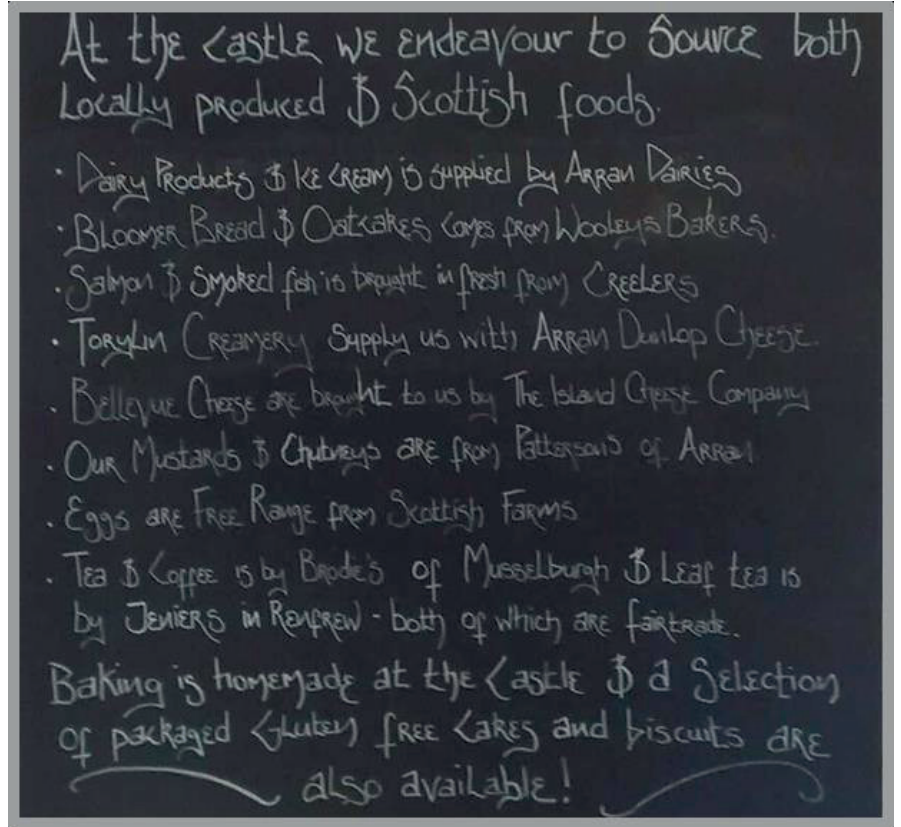 At the Castle we endeavour to Source both
Locally produced & Scottish foods.
· Dairy Products & Ice cream is supplied by Arran Dairies
· Bloomer Bread & Oatcakes comes from Wooleys Bakers.
· Salmon & Smoked fish is brought in fresh from Creelers
· Torylin Creamery Supply us with Arran Dunlop Cheese.
· Bellevue Cheese are brought to us by The Island Cheese Company
· Our Mustards & Chutneys are from Patterson's of Arran
· Eggs are Free Range from Scottish Farms
· Tea & Coffee is by Brodie's of Musselburgh & Leaf tea is
by Jeniers in Renfrew - both of which are fairtrade.
Baking is homemade at the Castle & a Selection
of packaged Gluten free Cakes and biscuits are
also available!